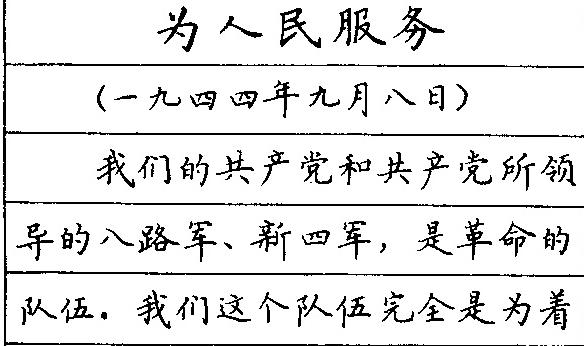 为人民服务
(一九四四年九月八日)
我们的共产党和共产党所领
导的八路军、新四军，是革命的
队伍。我们这个队伍完全是为着